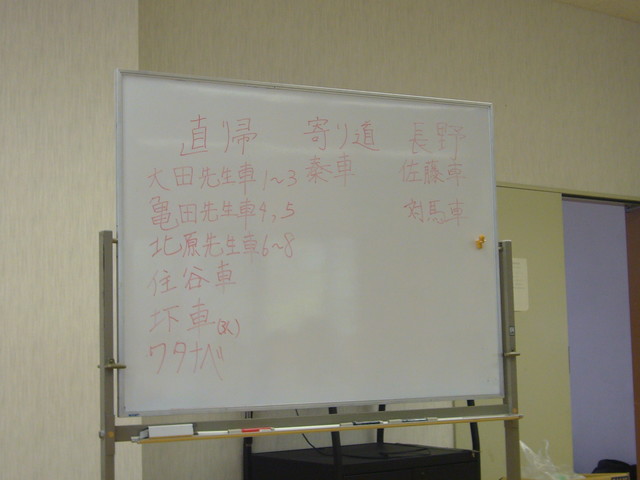 直帰 寄り道 長野
太田先生車1~3 秦車 佐藤車
亀田先生車4,5 対馬車
北原先生車6~8
住谷車
圷車
ワタナベ